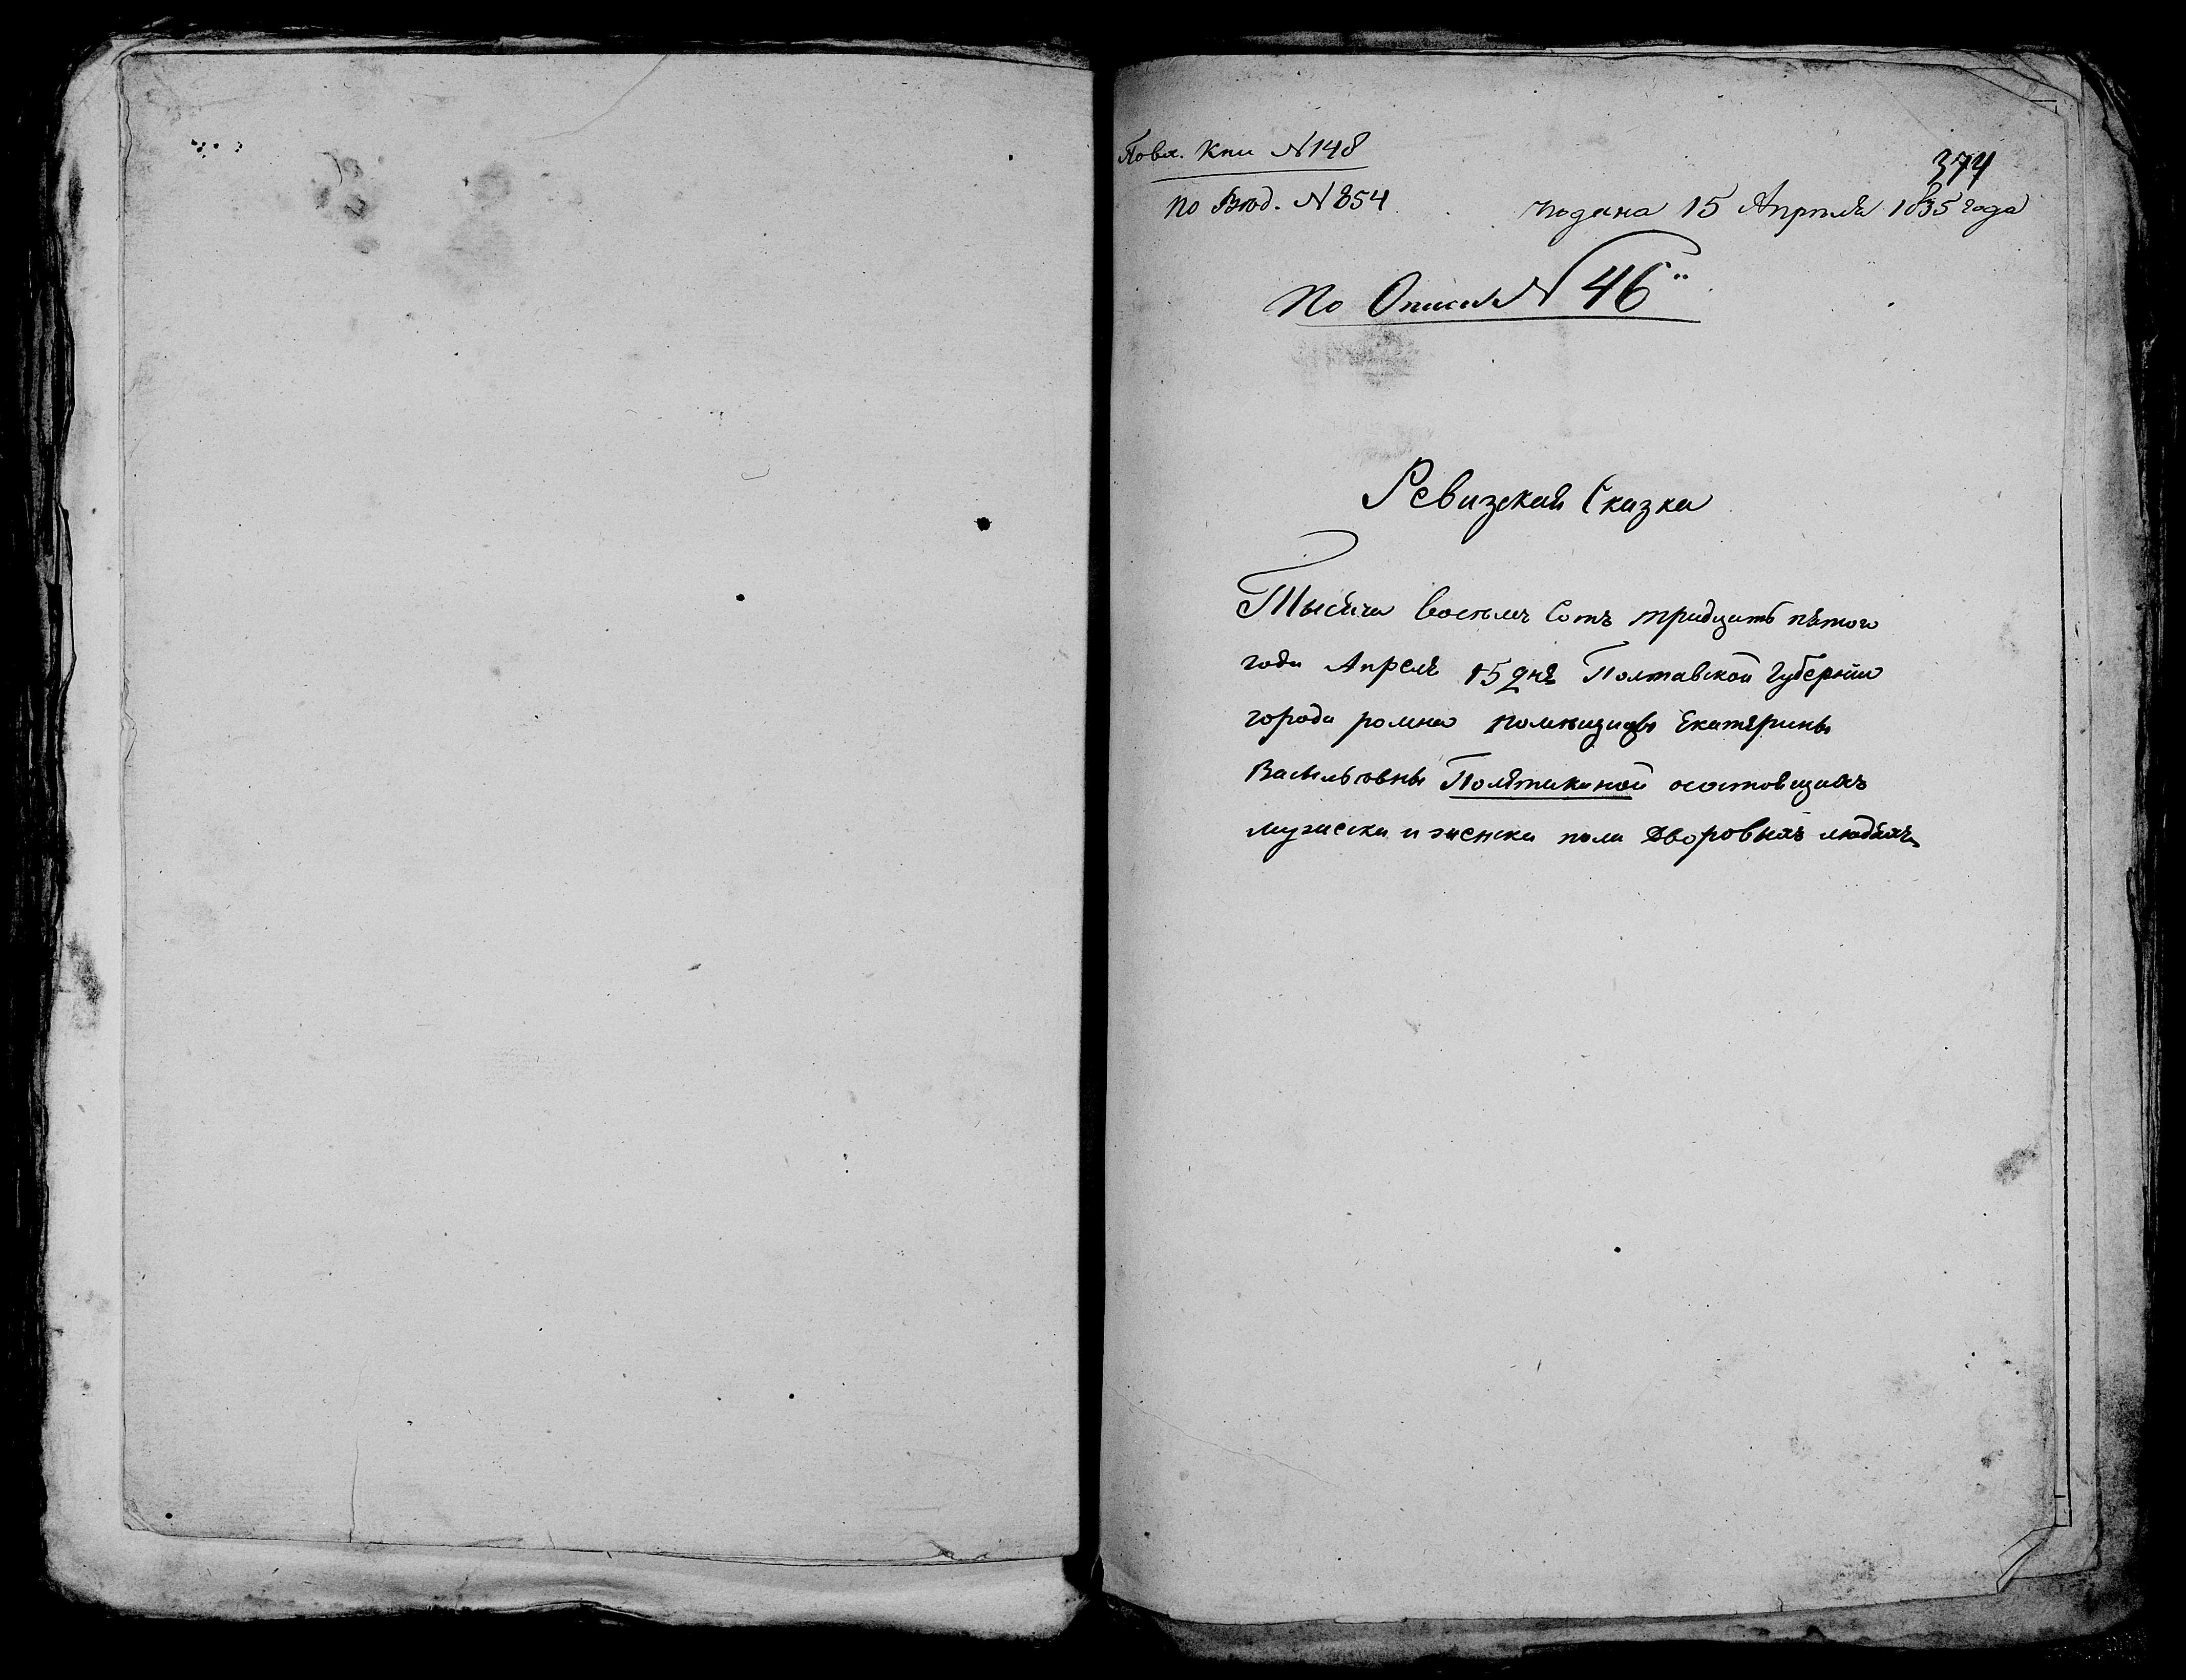 Повл. Кни №148
374
по Вход. №854
подана 15 Апреля 1835 года
По Описи № 46
Ревизская Сказка
Тысяча восемь Сотъ тридцать пятого
года Апреля 15 дня Полтавской губернии
города ромна помещицы Екатерины
Васильовны Полѣтикиной осостовщихъ
мужеска и женска пола Дворовыхъ людяхъ